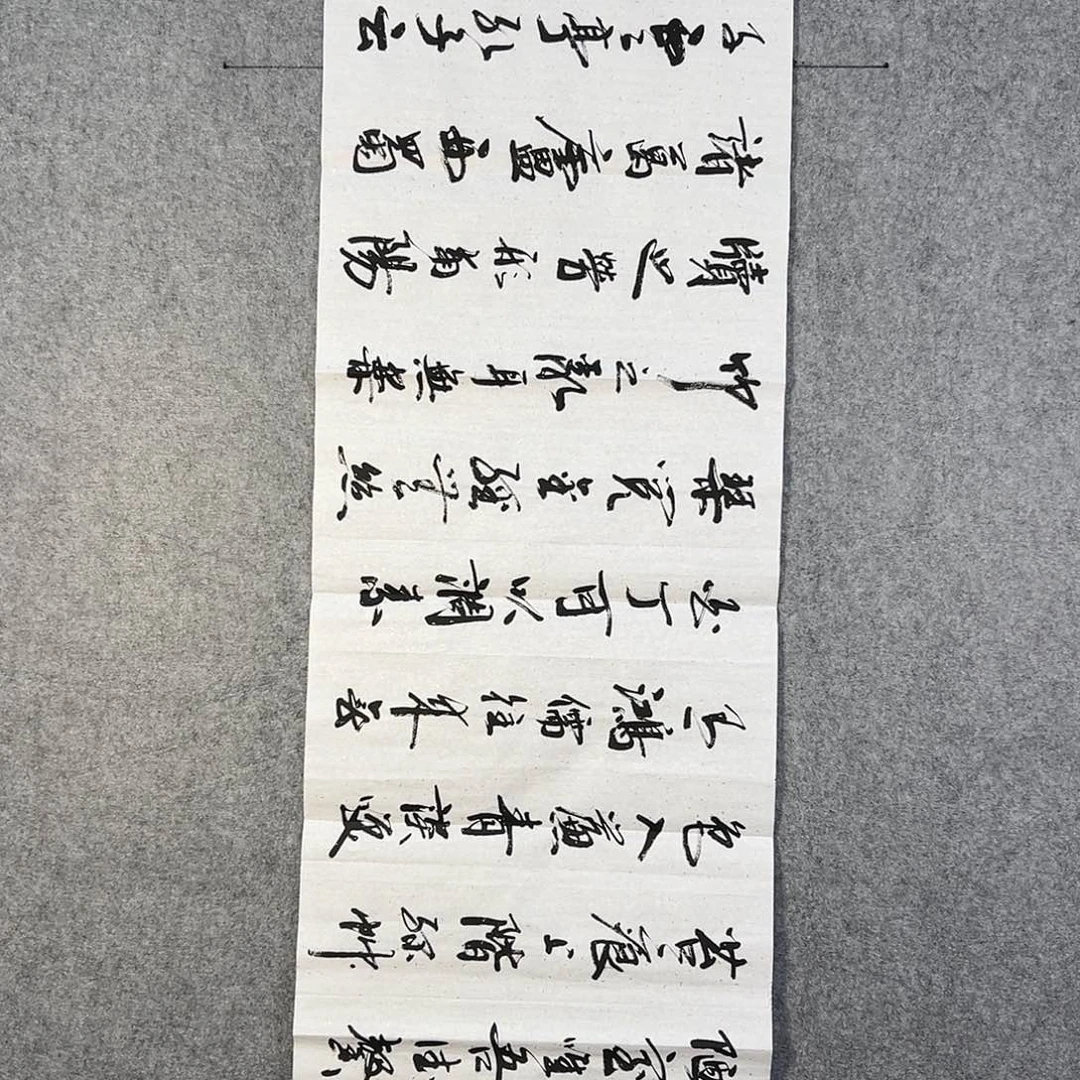 陋室惟吾德馨
苔痕上階綠艸
色入簾青談笑
有鴻儒往來無
白丁可以調素
琴閱金經無絲
竹之亂耳無案
牘之勞形南陽
諸葛廬西蜀
子雲亭孔子云